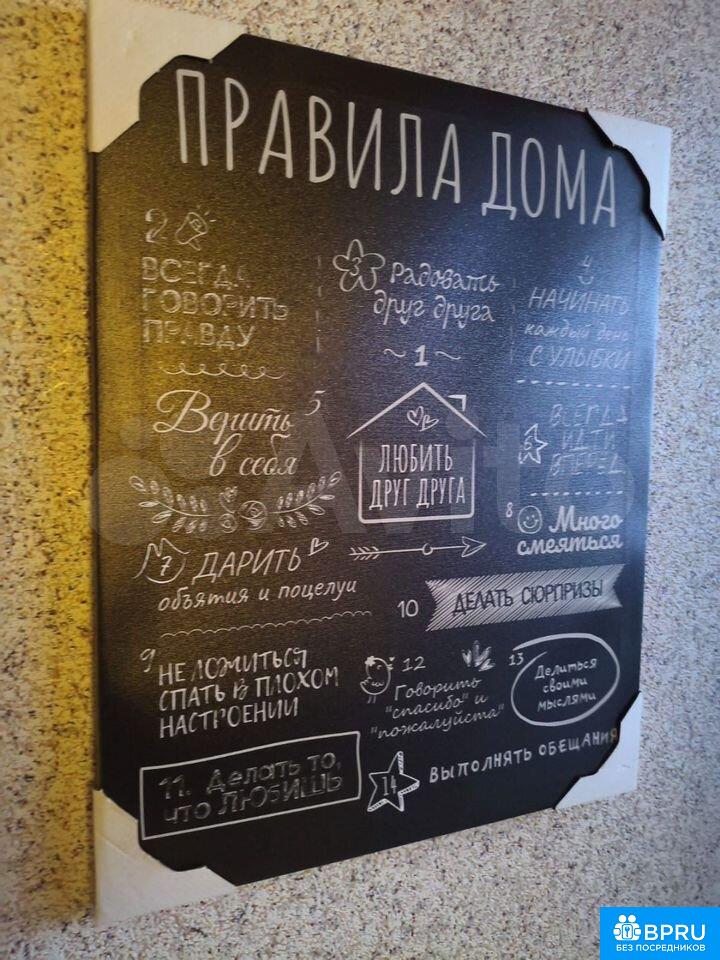 ПРАВИЛА ДОМА
2
ВСЕГДА
ГОВОРИТЬ
ПРАВДУ
3 Радовать
друг друга
4
НАЧИНАТЬ
каждый день
С УЛЫБКИ
~ 1 ~
ЛЮБИТЬ
ДРУГ ДРУГА
Верить 5
в себя
6
ВСЕГДА
ИДТИ
ВПЕРЕД
7 ДАРИТЬ
объятия и поцелуи
8 Много
смеяться
10 ДЕЛАТЬ СЮРПРИЗЫ
9
НЕ ЛОЖИТЬСЯ
СПАТЬ В ПЛОХОМ
НАСТРОЕНИИ
12
Говорить
"спасибо" и
"пожалуйста"
13
Делиться
своими
мыслями
11. Делать то,
что ЛЮБИШЬ
14 ВЫПОЛНЯТЬ ОБЕЩАНИЯ
Avito
BPRU
БЕЗ ПОСРЕДНИКОВ